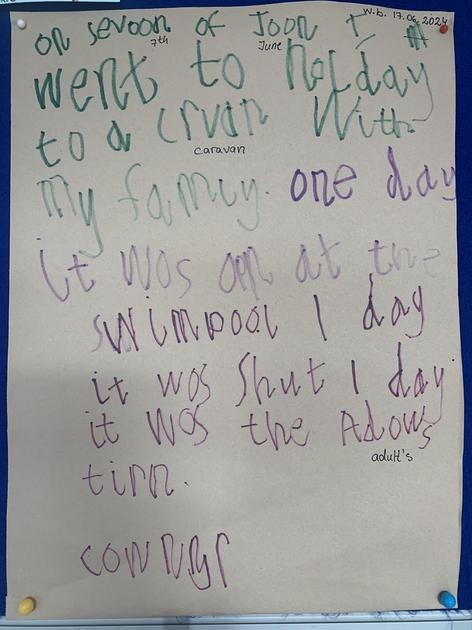 w.b. 17.06.2024
on sevoon of Joon I
7th June
went to holday
to a crvan With
caravan
My family. one day
it wos opn at the
swimpool 1 day
it wos Shut 1 day
it wos the Adows
adult's
tirn.